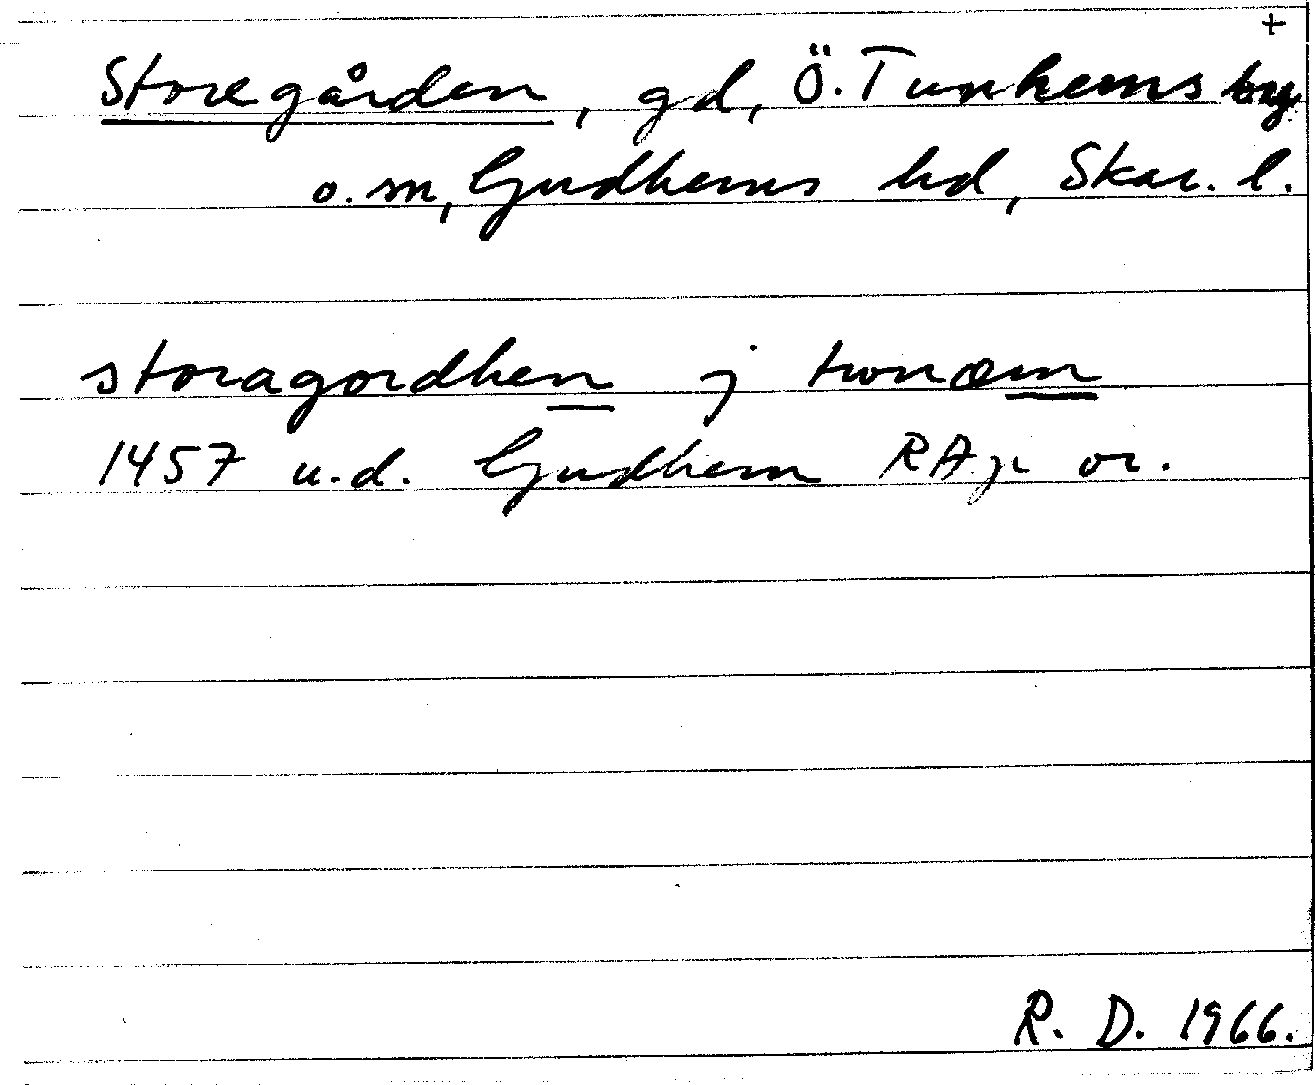 +
Storegården, gd, Ö. Tunhems by
o. sn, Gudhems hd, Skar. l.
storagordhen j twnæm
1457 u.d. Gudhem RAp or.
R. D. 1966.